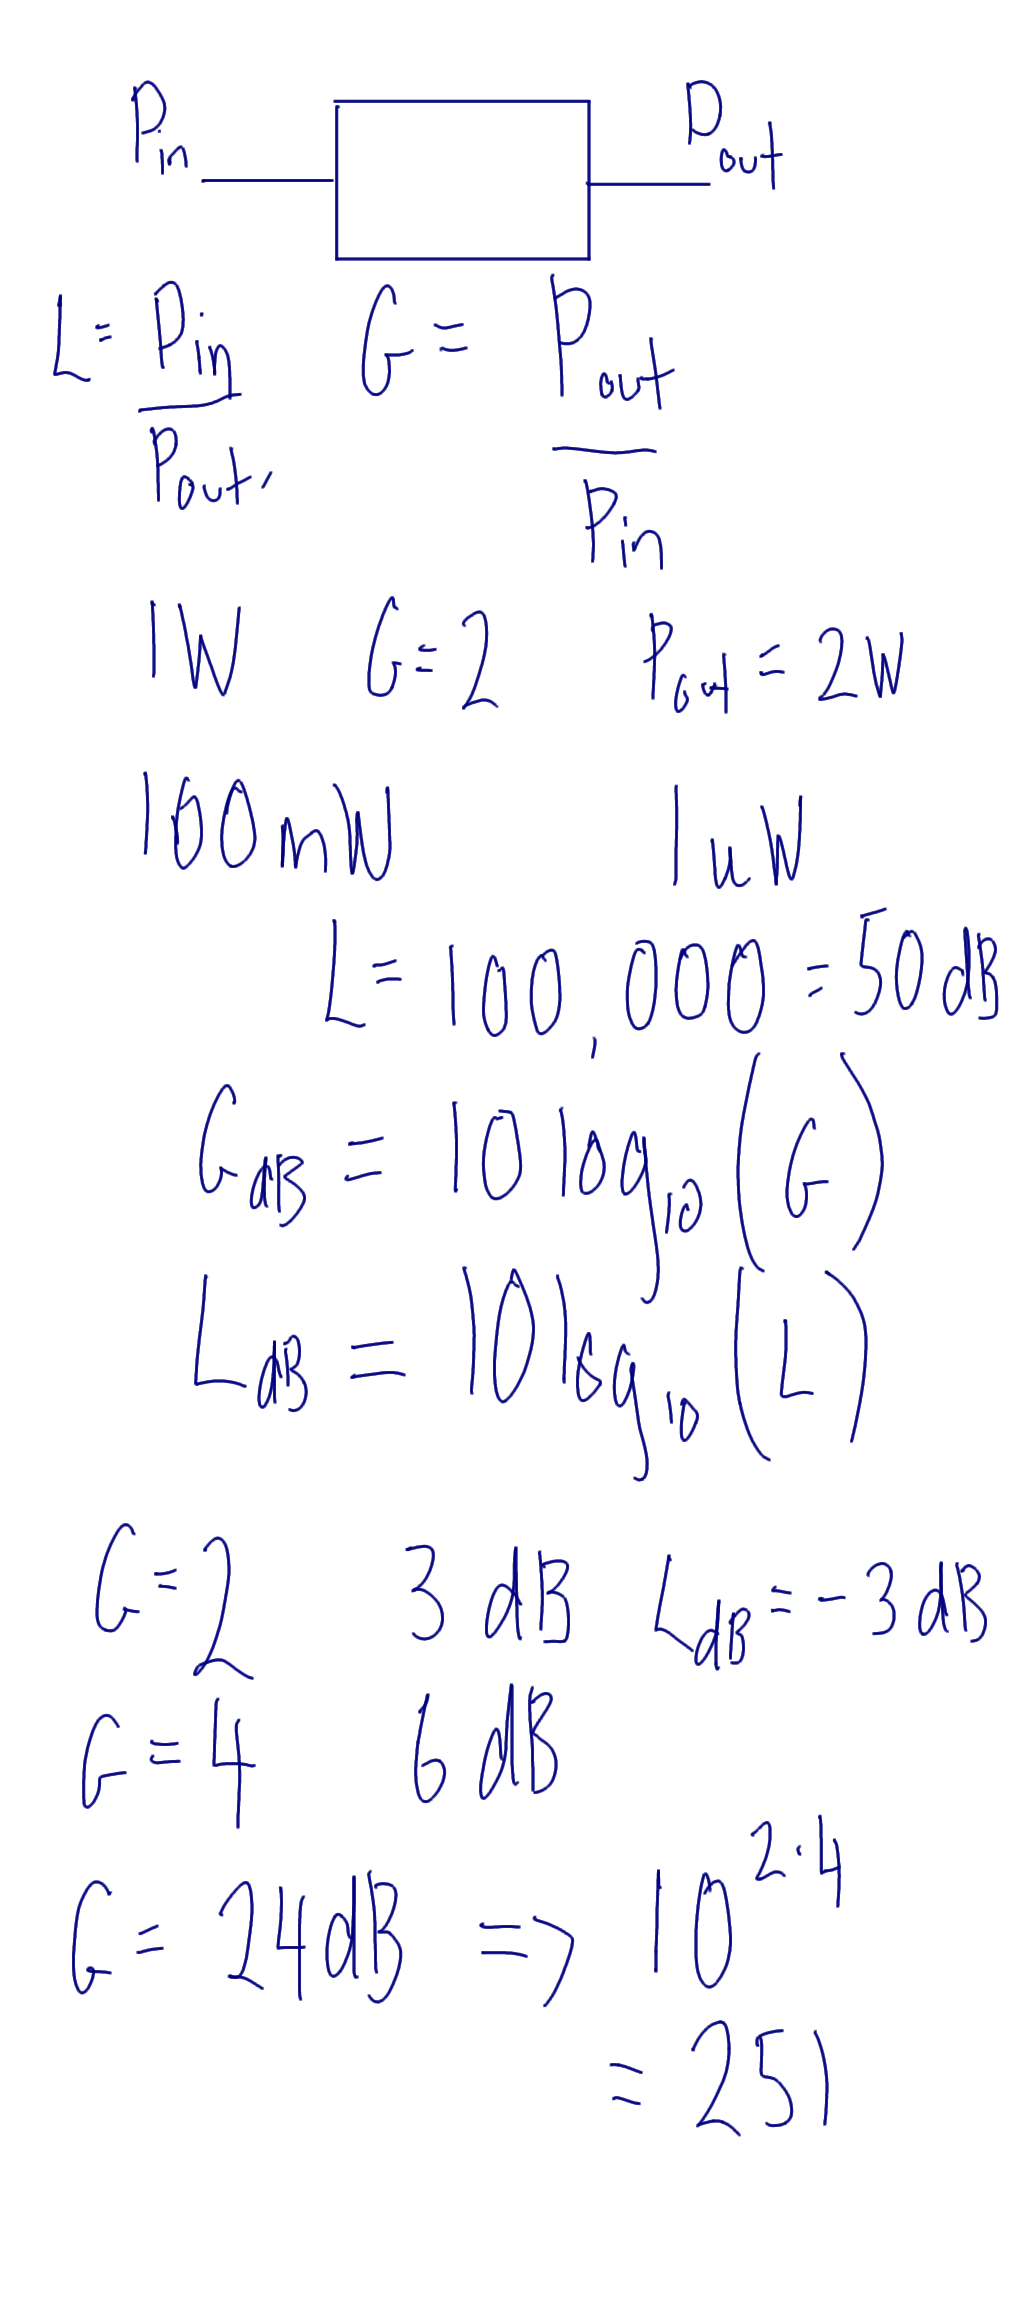 Pin Pout
L = Pin / Pout, G = Pout / Pin
1W G=2 Pout = 2W
100mW 1uW
L = 100,000 = 50 dB
GdB = 10 log10 (G)
LdB = 10 log10 (L)
G=2 3 dB LdB = -3 dB
G=4 6 dB
G = 24dB => 10^2.4
= 251